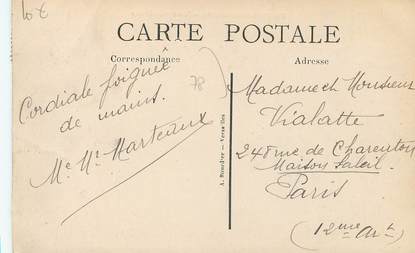 10€
CARTE POSTALE
Correspondance
Adresse
78
Cordiale poignée
de mains.
Me. Mt. Marteaux
A. Bourdier - Versailles
Madame et Monsieur
Vialatte
248 rue de Charenton
Maison Soleil.
Paris
(12me Art)